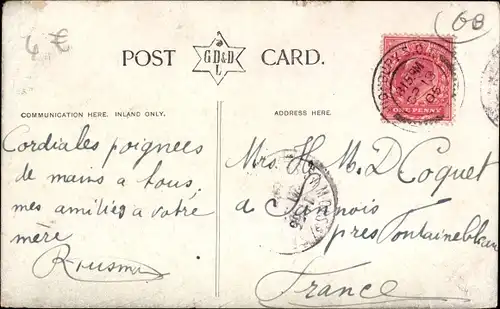 4 €
60
POST CARD.
GD&D
L
ONE PENNY
COMMUNICATION HERE. INLAND ONLY.
ADDRESS HERE.
Cordiales poignees
de mains a tous,
mes amitiés a votre
mère
Mrs. H. M. D Coquet
a Sannois
pres Fontainebleau
France